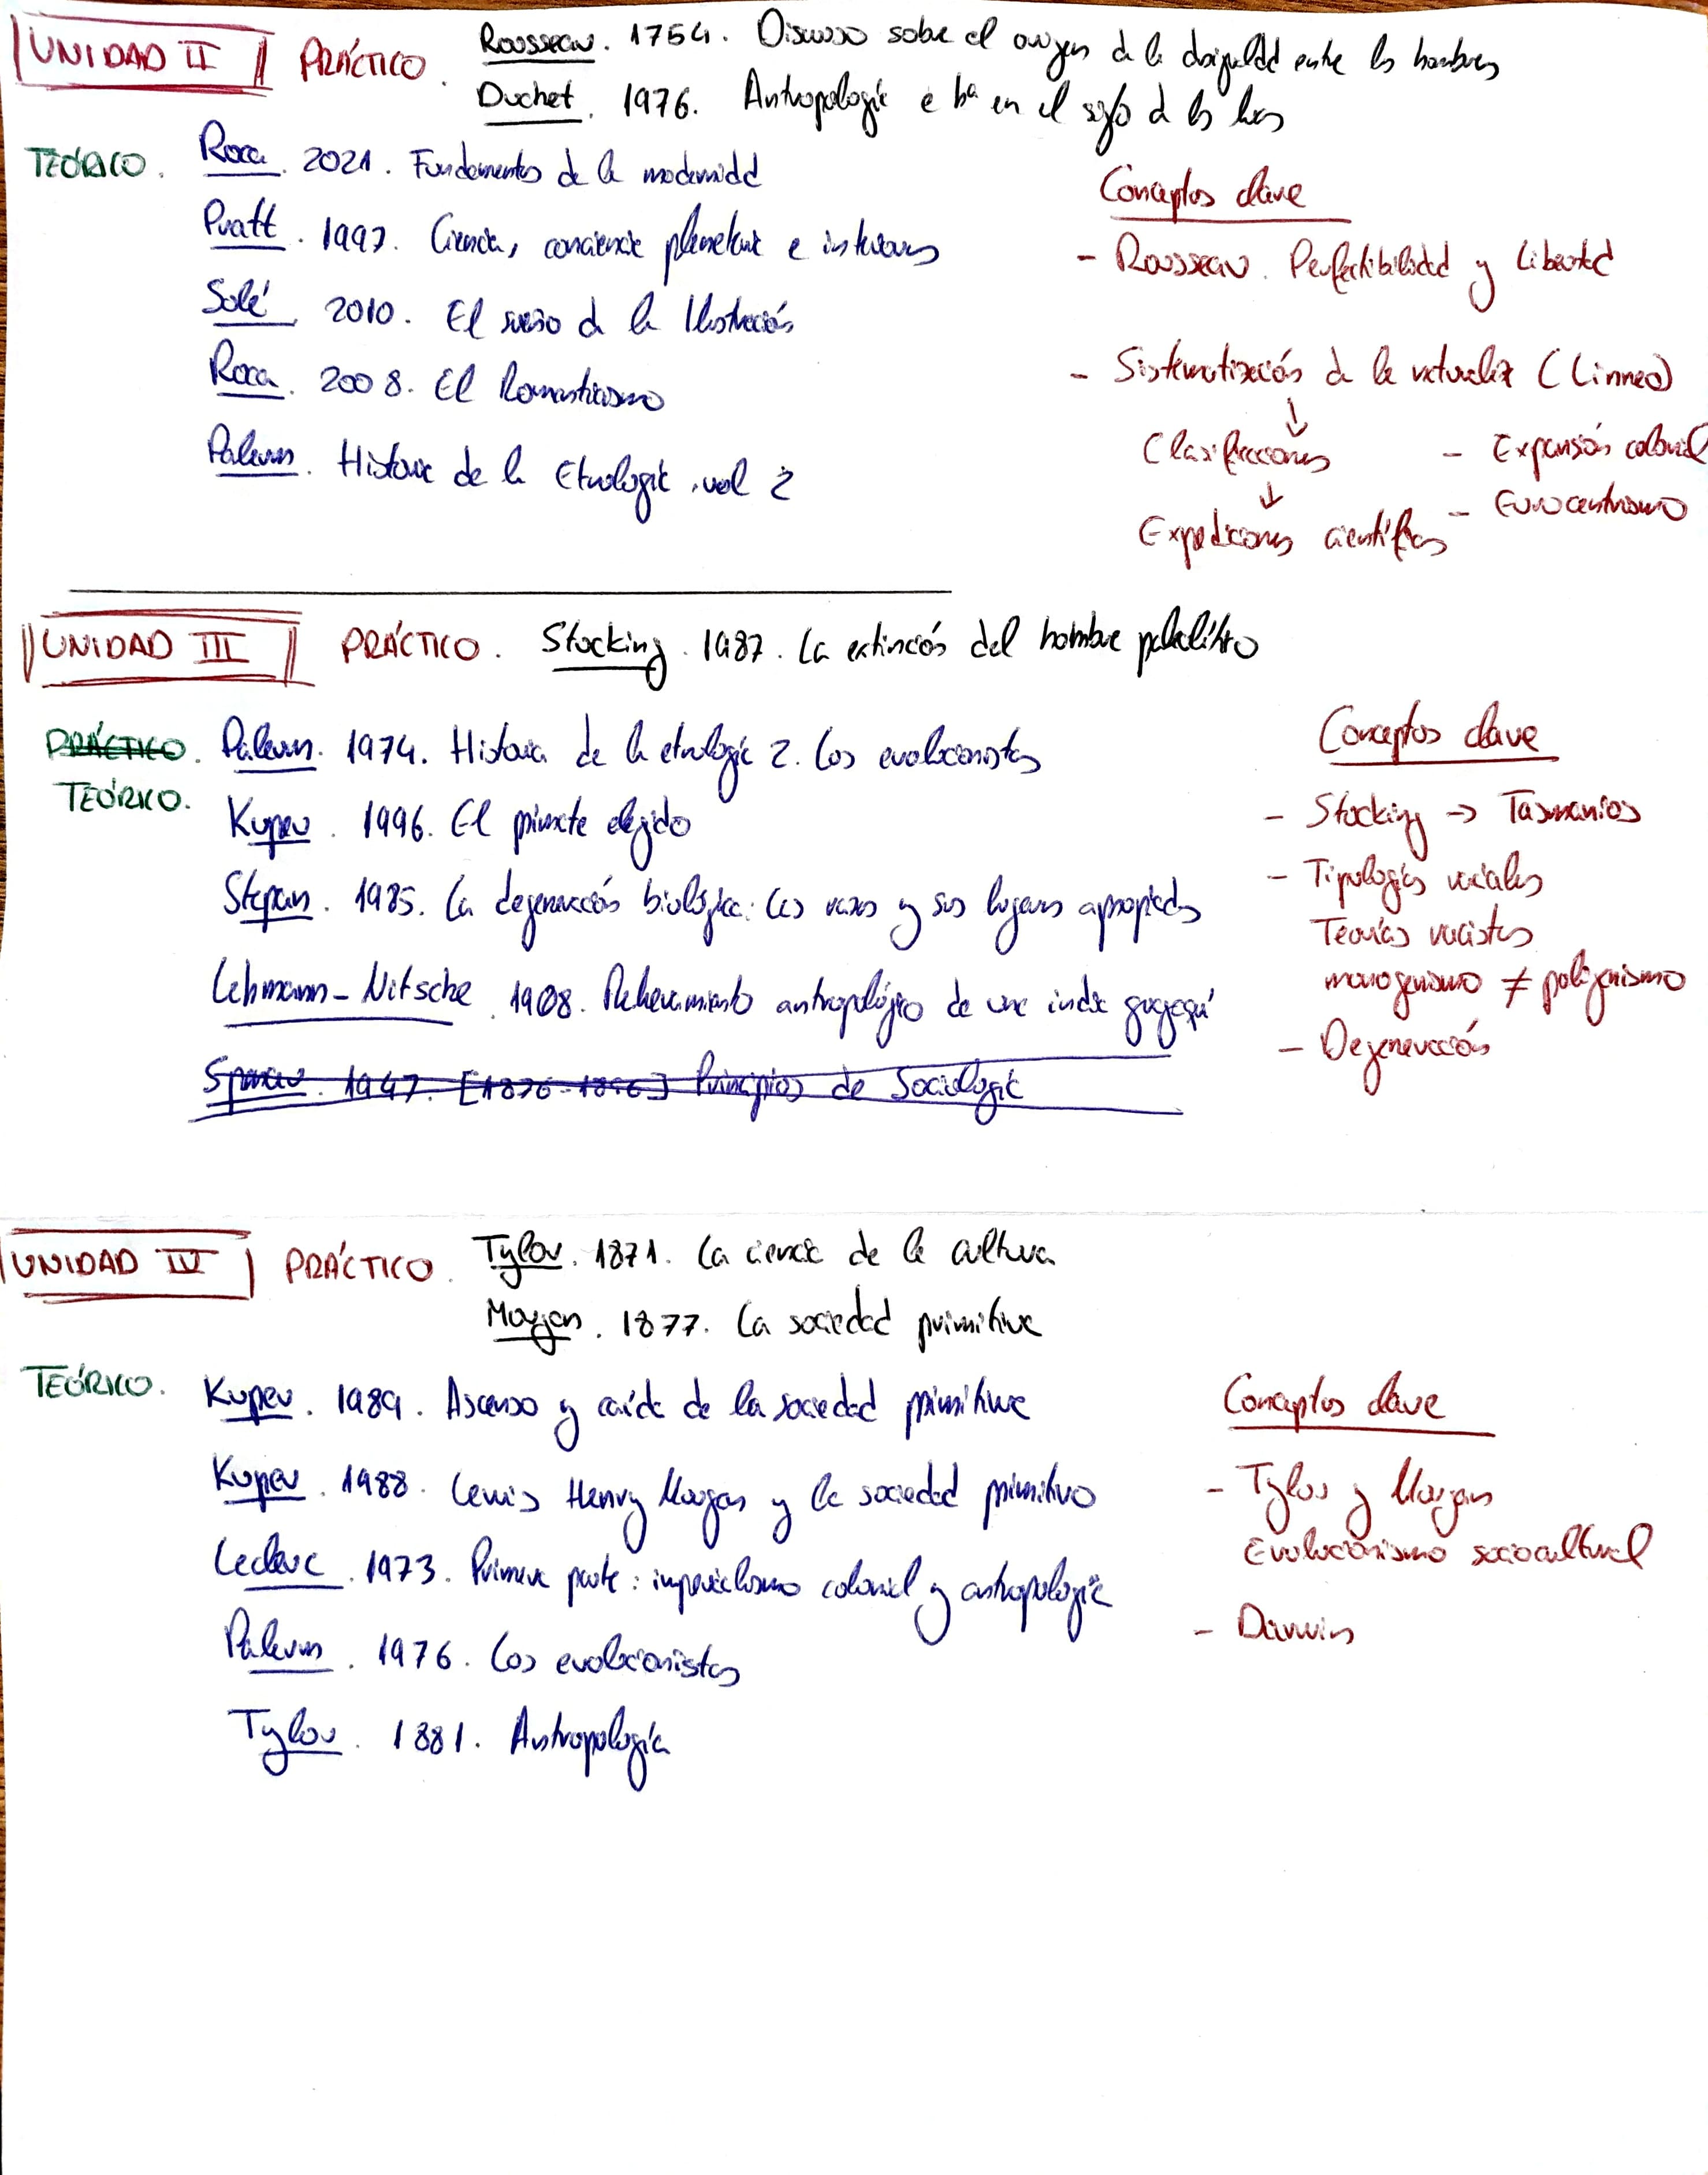 UNIDAD II PRÁCTICO. Rousseau. 1754. Discurso sobre el origen de la desigualdad entre los hombres
Duchet. 1976. Antropología e hª en el siglo de las luces
TEÓRICO. Roca. 2021. Fundamentos de la modernidad
Pratt. 1997. Ciencia, conciencia planetaria e interiores
Solé 2010. El sueño de la Ilustración
Roca. 2008. El Romanticismo
Palerm. Historia de la Etnología. vol 2
Conceptos clave
- Rousseau. Perfectibilidad y libertad
- Sistematización de la naturaleza (Linneo)
↓
Clasificaciones
↓
Expediciones científicas
- Expansión colonial
- Eurocentrismo
UNIDAD III PRÁCTICO. Stocking. 1987. La extinción del hombre paleolítico
PRÁCTICO. Palerm. 1974. Historia de la etnología 2. Los evolucionistas
TEÓRICO.
Kuper. 1996. El primate elegido
Stepan. 1985. La degeneración biológica: las razas y sus lugares apropiados
Lehmann-Nitsche. 1908. Relevamiento antropológico de una india guayaquí
Spencer. 1947. [1876-1896] Principios de Sociología
Conceptos clave
- Stocking → Tasmanios
- Tipologías raciales
Teorías racistas
monogenismo ≠ poligenismo
- Degeneración
UNIDAD IV PRÁCTICO. Tylor. 1871. La ciencia de la cultura
Morgan. 1877. La sociedad primitiva
TEÓRICO. Kuper. 1989. Ascenso y caída de la sociedad primitiva
Kuper. 1988. Lewis Henry Morgan y la sociedad primitivo
Leclerc. 1973. Primera parte: imperialismo colonial y antropología
Palerm. 1976. Los evolucionistas
Tylor. 1881. Antropología
Conceptos clave
- Tylor y Morgan
Evolucionismo sociocultural
- Darwin